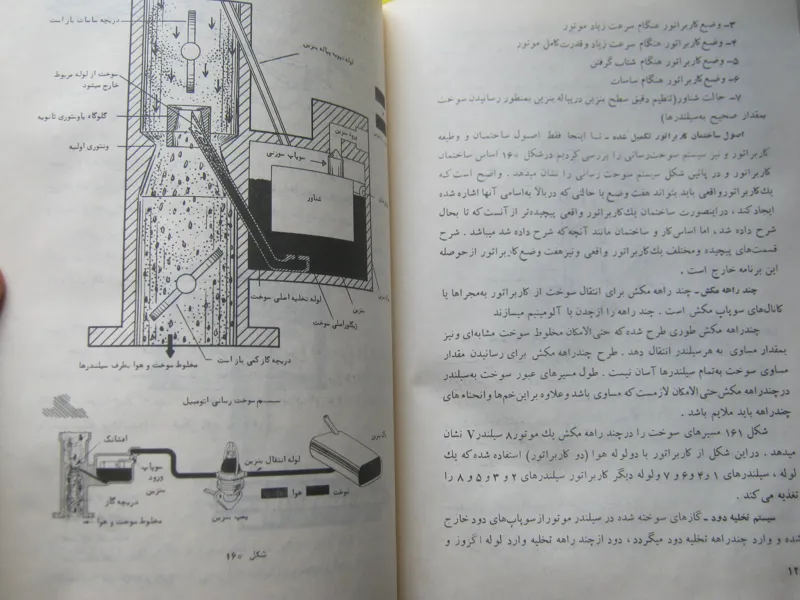 ۳ــ وضع کاربراتور هنگام سرعت زیاد موتور
۴ــ وضع کاربراتور هنگام سرعت زیاد وقدرت کامل موتور
۵ــ وضع کاربراتور هنگام شتاب گرفتن
۶ــ وضع کاربراتور هنگام ساسات
۷ــ حالت شناور (تنظیم دقیق سطح بنزین در پیاله بنزین بمنظور رسانیدن سوخت
بمقدار صحیح به سیلندرها)
اصول ساختمان کاربراتور تکمیل شده ــ تا اینجا فقط اصول ساختمان و وظیفه
کاربراتور و نیز سیستم سوخت رسانی را بررسی کردیم در شکل ۱۶۰ اساس ساختمان
کاربراتور و در پائین شکل سیستم سوخت رسانی را نشان میدهد . واضح است که
یك کاربراتور واقعی باید بتواند هفت وضع یا حالتی که در بالا به اسامی آنها اشاره شده
ایجاد کند ، در اینصورت ساختمان یك کاربراتور واقعی پیچیده تر از آنست که تا بحال
شرح داده شد ، اما اساس کار و ساختمان مانند آنچه که شرح داده شد میباشد . شرح
قسمت های پیچیده و مختلف یك کاربراتور واقعی و نیز هفت وضع کاربراتور از حوصله
این برنامه خارج است .
چند راهه مکش ــ چند راهه مکش برای انتقال سوخت از کاربراتور به مجراها یا
کانال های سوپاپ مکش است . چند راهه را از چدن یا آلومینیم میسازند
چندراهه مکش طوری طرح شده که حتی الامکان مخلوط سوخت مشابه ای و نیز
بمقدار مساوی به هر سیلندر انتقال دهد . طرح چندراهه مکش برای رسانیدن مقدار
مساوی سوخت به تمام سیلندرها آسان نیست . طول مسیرهای عبور سوخت به سیلندر
در چندراهه مکش حتی الامکان لازمست که مساوی باشد و علاوه بر این خم ها و انحناء های
چندراهه باید ملایم باشد .
شکل ۱۶۱ مسیرهای سوخت را در چند راهه مکش یك موتور ۸ سیلندر V نشان
میدهد . در این شکل از کاربراتور با دو لوله هوا (دو کاربراتور) استفاده شده که یك
لوله ، سیلندرهای ۱ و ۴ و ۶ و ۷ و لوله دیگر کاربراتور سیلندرهای ۲ و ۳ و ۵ و ۸ را
تغذیه می کند .
سیستم تخلیه دود ــ گازهای سوخته شده در سیلندر موتور از سوپاپ های دود خارج
شده و وارد چندراهه تخلیه دود میگردد ، دود از چند راهه تخلیه وارد لوله اگزوز و
دریچه ساسات باز است
لوله تهویه پیاله بنزین
سوخت از لوله مربوط
خارج میشود
گلوگاه یا ونتوری ثانویه
ونتوری اولیه
ورود بنزین
سوپاپ سوزنی
شناور
لوله تخلیه اصلی سوخت
بنزین
ژیگلور اصلی سوخت
دریچه گاز کمی باز است
مخلوط سوخت و هوا بطرف سیلندرها
سیستم سوخت رسانی اتومبیل
افشانک
سوپاپ
ورود
بنزین
دریچه گاز
مخلوط سوخت و هوا
لوله انتقال بنزین
پمپ بنزین
هوا
سوخت
شکل ۱۶۰